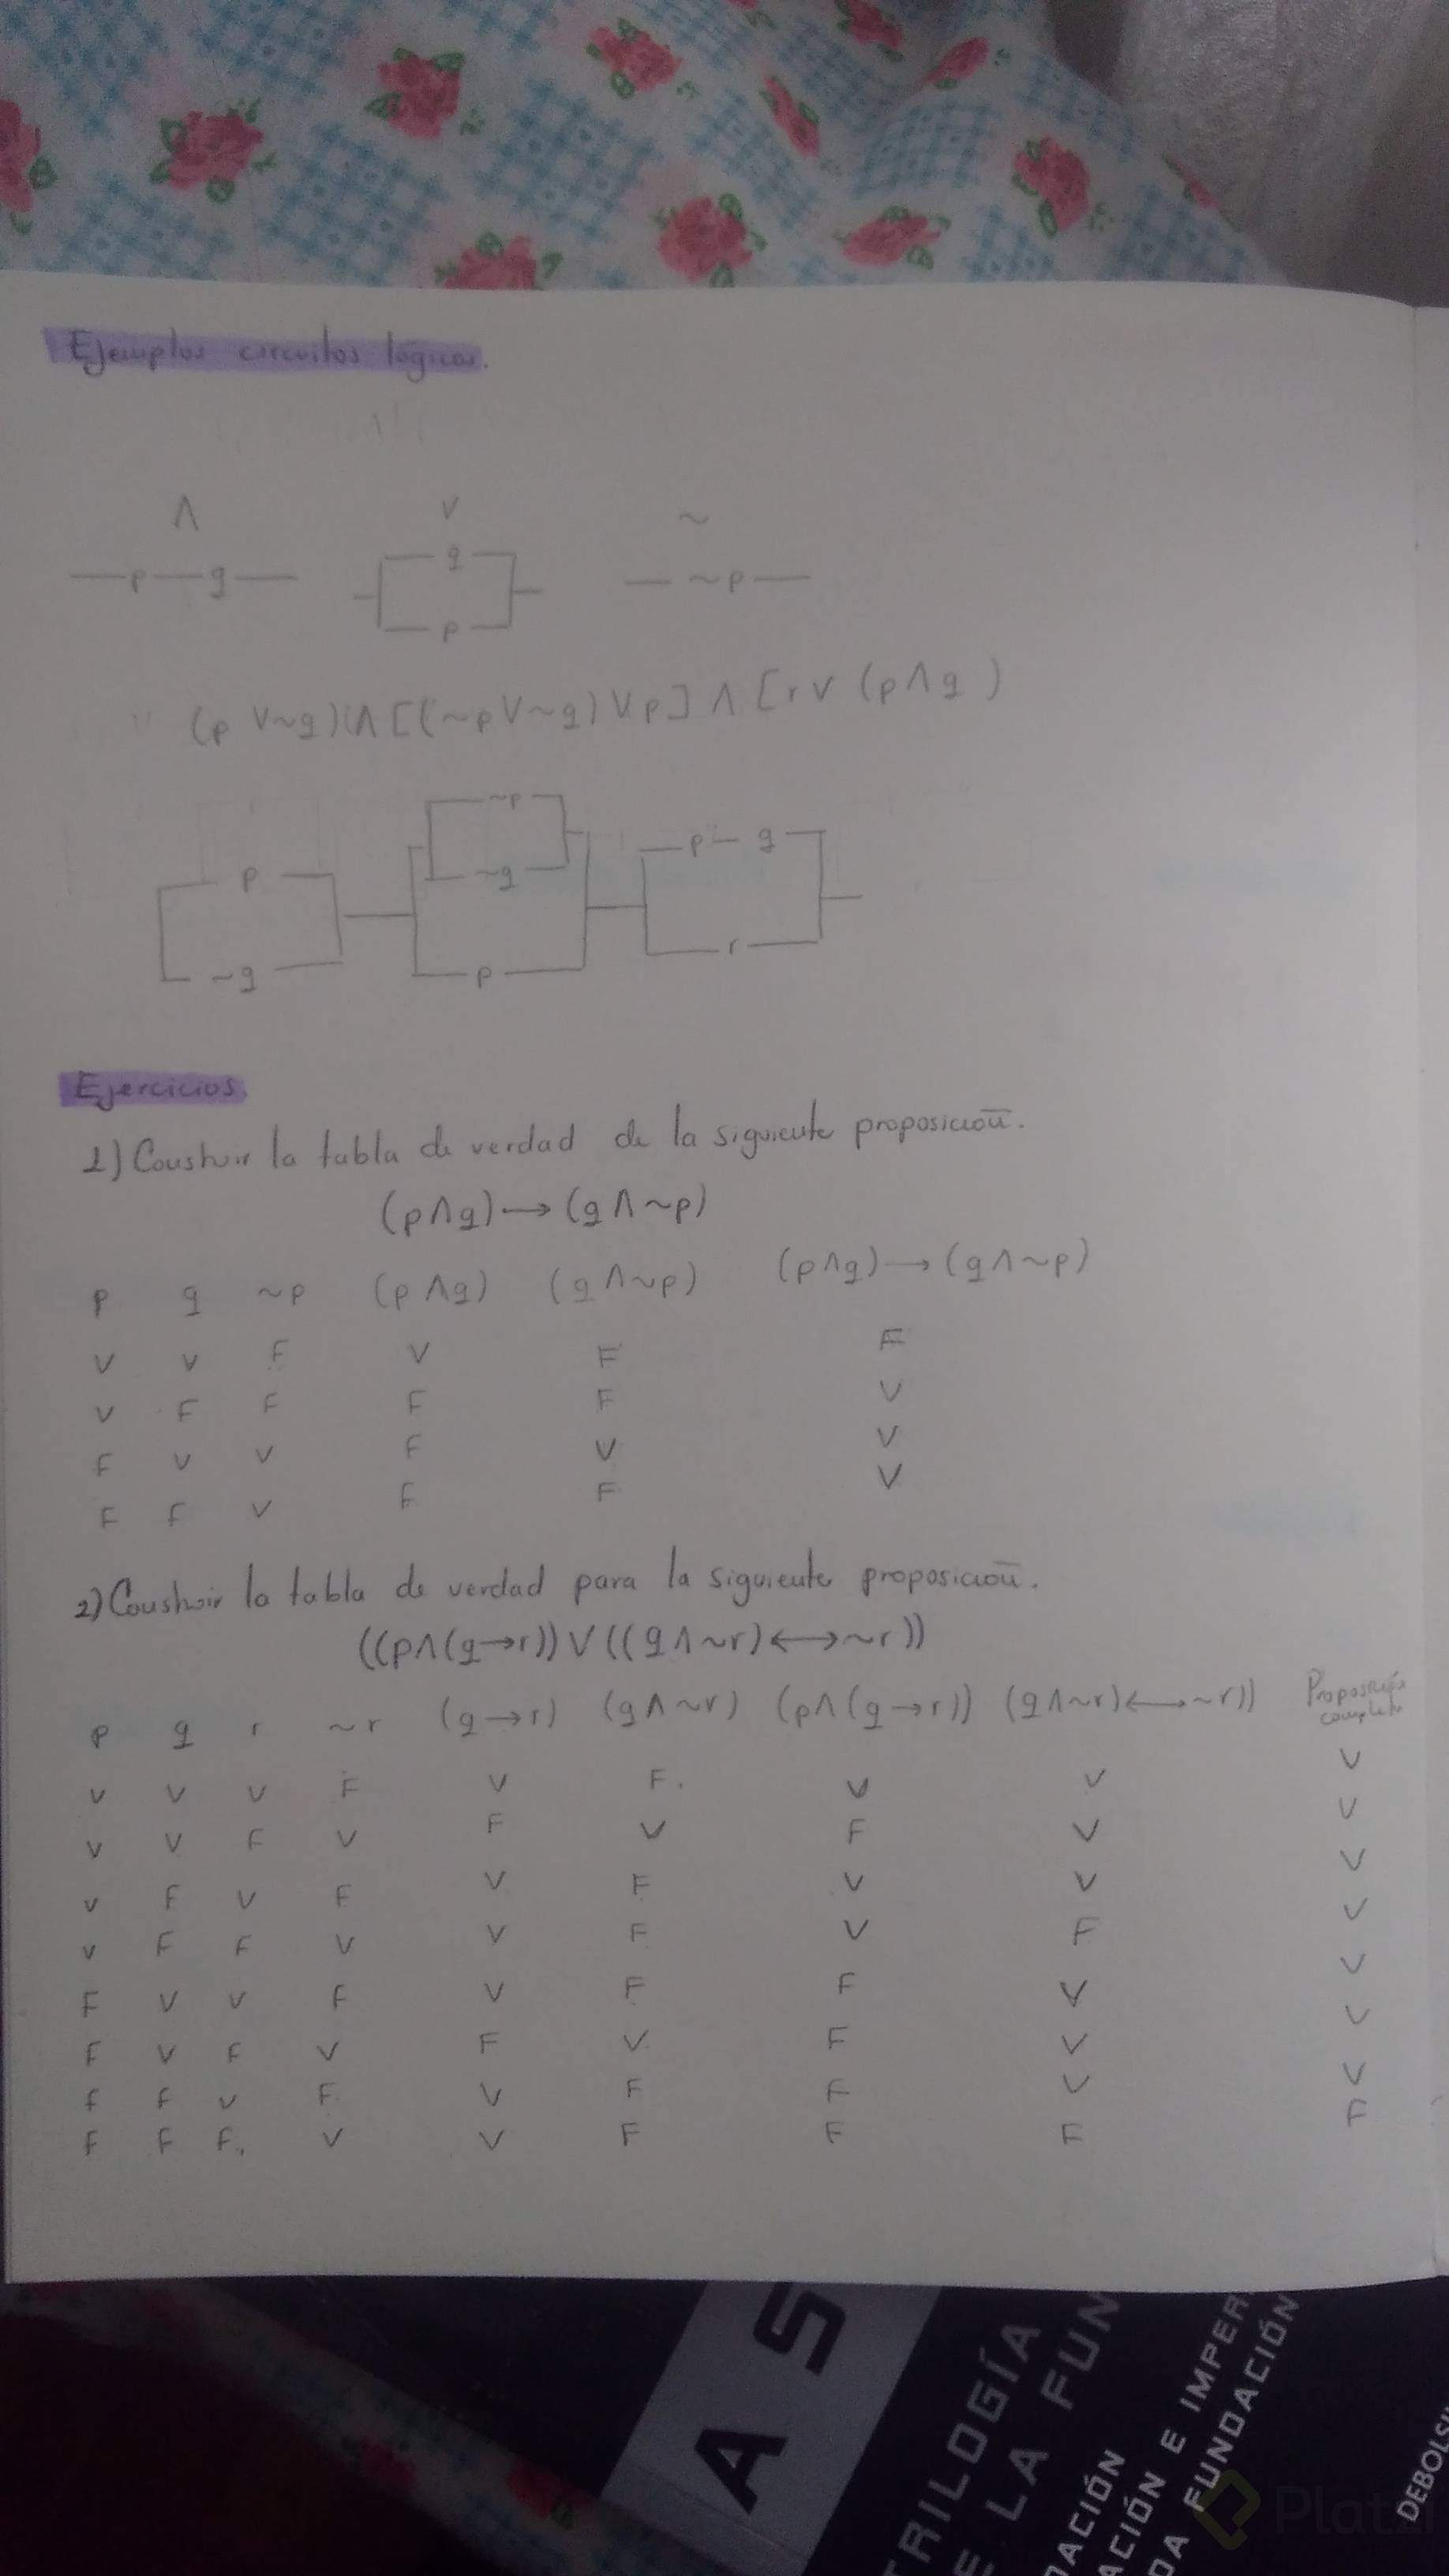 Ejemplos circuitos lógicos.
∧ ∨ ~
p g
g
p
~p
(p ∨~g) ∧ [(~p ∨ ~g) ∨ p] ∧ [r ∨ (p ∧ g )
p
~g
~p
~g
p
p g
r
Ejercicios
1) Construir la tabla de verdad de la siguiente proposición.
(p ∧ g) → (g ∧ ~p)
p g ~p (p ∧ g) (g ∧ ~p) (p ∧ g) → (g ∧ ~p)
V V F V F F
V F F F F V
F V V F V V
F F V F F V
2) Construir la tabla de verdad para la siguiente proposición.
((p ∧ (g → r)) ∨ ((g ∧ ~r) ↔ ~r))
p g r ~r (g → r) (g ∧ ~r) (p ∧ (g → r)) (g ∧ ~r) ↔ ~r)) Proposición completa
V V V F V F. V V V
V V F V F V F V V
V F V F V F V V V
V F F V V F V F V
F V V F V F F V V
F V F V F V F V V
F F V F V F F V V
F F F, V V F F F F
AS
TRILOGÍA
E LA FUN
DACIÓN
ACIÓN E IMPER
DA FUNDACIÓN
DEBOLS
Platzi